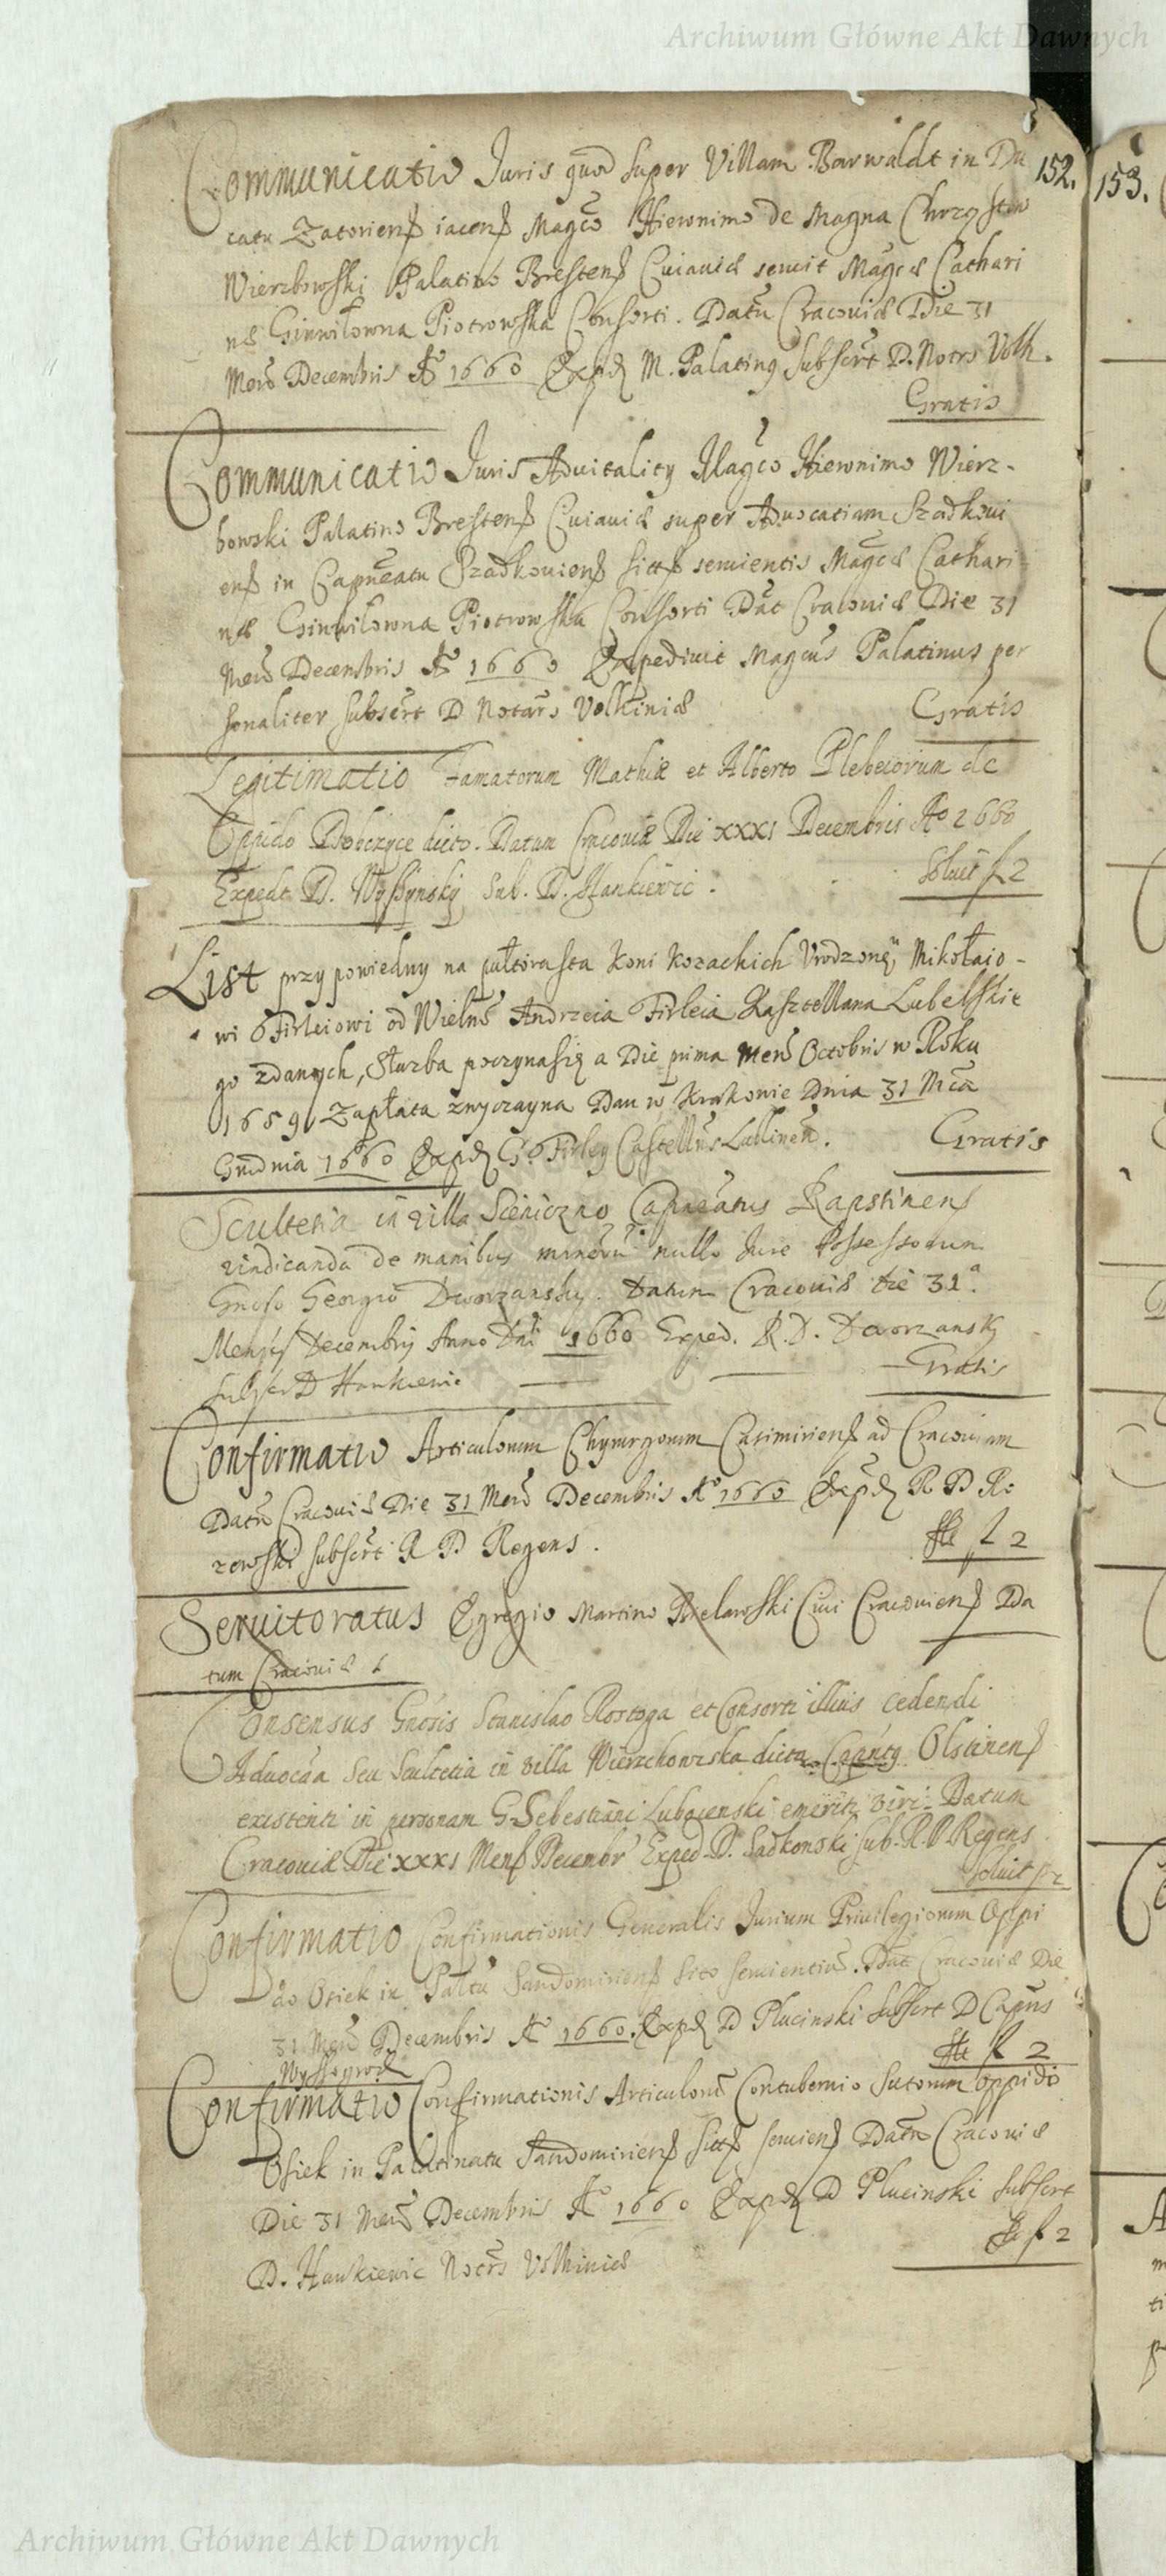 Archiwum Główne Akt Dawnych
152.
153.
Communicatio Juris quod super Villam Barwaldt in Du
catu Zatoriens iacens Magco Hieronimo de Magna Chrzastow
Wierzbowski Palatino Brestens Cuiaviæ servit Magcæ Cathari
næ Giniwiłowna Piotrowska Consorti. Datu Cracoviæ Die 31
Mens Decembris Ao 1660 Exped M. Palatinus Subscrt D. Notrs Volh.
Gratis
Communicatio Juris Advitalitij Magco Hieronimo Wierz-
bowski Palatino Brestens Cuiaviæ super Advocatiam Szadkovi
ens in Capneatu Szadkoviens sitt servientis Magcæ Cathari
næ Giniwilowna Piotrowska Consorti Dat Cracoviæ Die 31
Mens Decembris Ao 1660 Expedivit Magcus Palatinus per
sonaliter subscrt D Notars Volhiniæ
Gratis
Legitimatio Famatorum Mathiæ et Alberto Plebeiorum de
Oppido Dobczyce dicto. Datum Cracoviæ Die XXXI Decembris Ao 1660
Expedt D. Wyssynsky Sub. D. Hankiewic.
Soluit f 2
List przypowiedny na pułtorasta koni kozachich Vrodzonem Mikołaio-
wi Firleiowi od Wielms Andrzeia Firleia Kasztellana Lubelskie
go zdanych, Służba poczyna się a Die prima Mens Octobris w Roku
1659, Zapłata zwyczayna Dan w Krakowie Dnia 31 Mca
Grudnia 1660 Exped G. Firley Castellns Lublinens.
Gratis
Scultetia in villa Sieniczno Capneatus Rapstinens
vindicanda de manibus minorum nullo Jure Possessorum
Gnoso Georgio Dworzansky. Datum Cracoviæ die 31a
Mensis Decembris Anno Dni 1660 Exped. R. D. Dworzansky
Subscr D Hankiewic
Gratis
Confirmatio Articulorum Chyrurgorum Casimiriens ad Cracoviam
Datu Cracoviæ Die 31 Mens Decembris Ao 1660 Exped R D Ro
zowski subscrt R D Regens.
f 2
Servitoratus Egregio Martino Bielawski Civi Cracoviens Da
tum Cracoviæ
Consensus Gnosis Stanislao Rostoga et Consorti illius cedendi
Advocaa seu Scultetia in villa Wierzchowiska dicta Olstinens
existenti in personam G Sebestiani Lubocenski emeriti viri. Datum
Cracoviæ Die XXXI Mens Decembr Exped. D. Sadkonski Sub. R. D. Regens
soluit f 2
Confirmatio Confirmationis Generalis Jurium Privilegiorum Oppi
do Osiek in Paltu Sandomiriens sito servientius. Dat Cracoviæ Die
31 Mens Decembris Ao 1660. Exped D Plucinski Subscrt D Capns
Wyssogrod
f 2
Confirmatio Confirmationis Articulons Contubernio Sutorum oppidi
Osiek in Palatinatu Sandomiriens sitt serviens Datu Cracoviæ
Die 31 Mens Decembris Ao 1660 Exped D Plucinski subscrt
D. Hankiewic Notrs Volhiniæ
f 2
Archiwum Główne Akt Dawnych